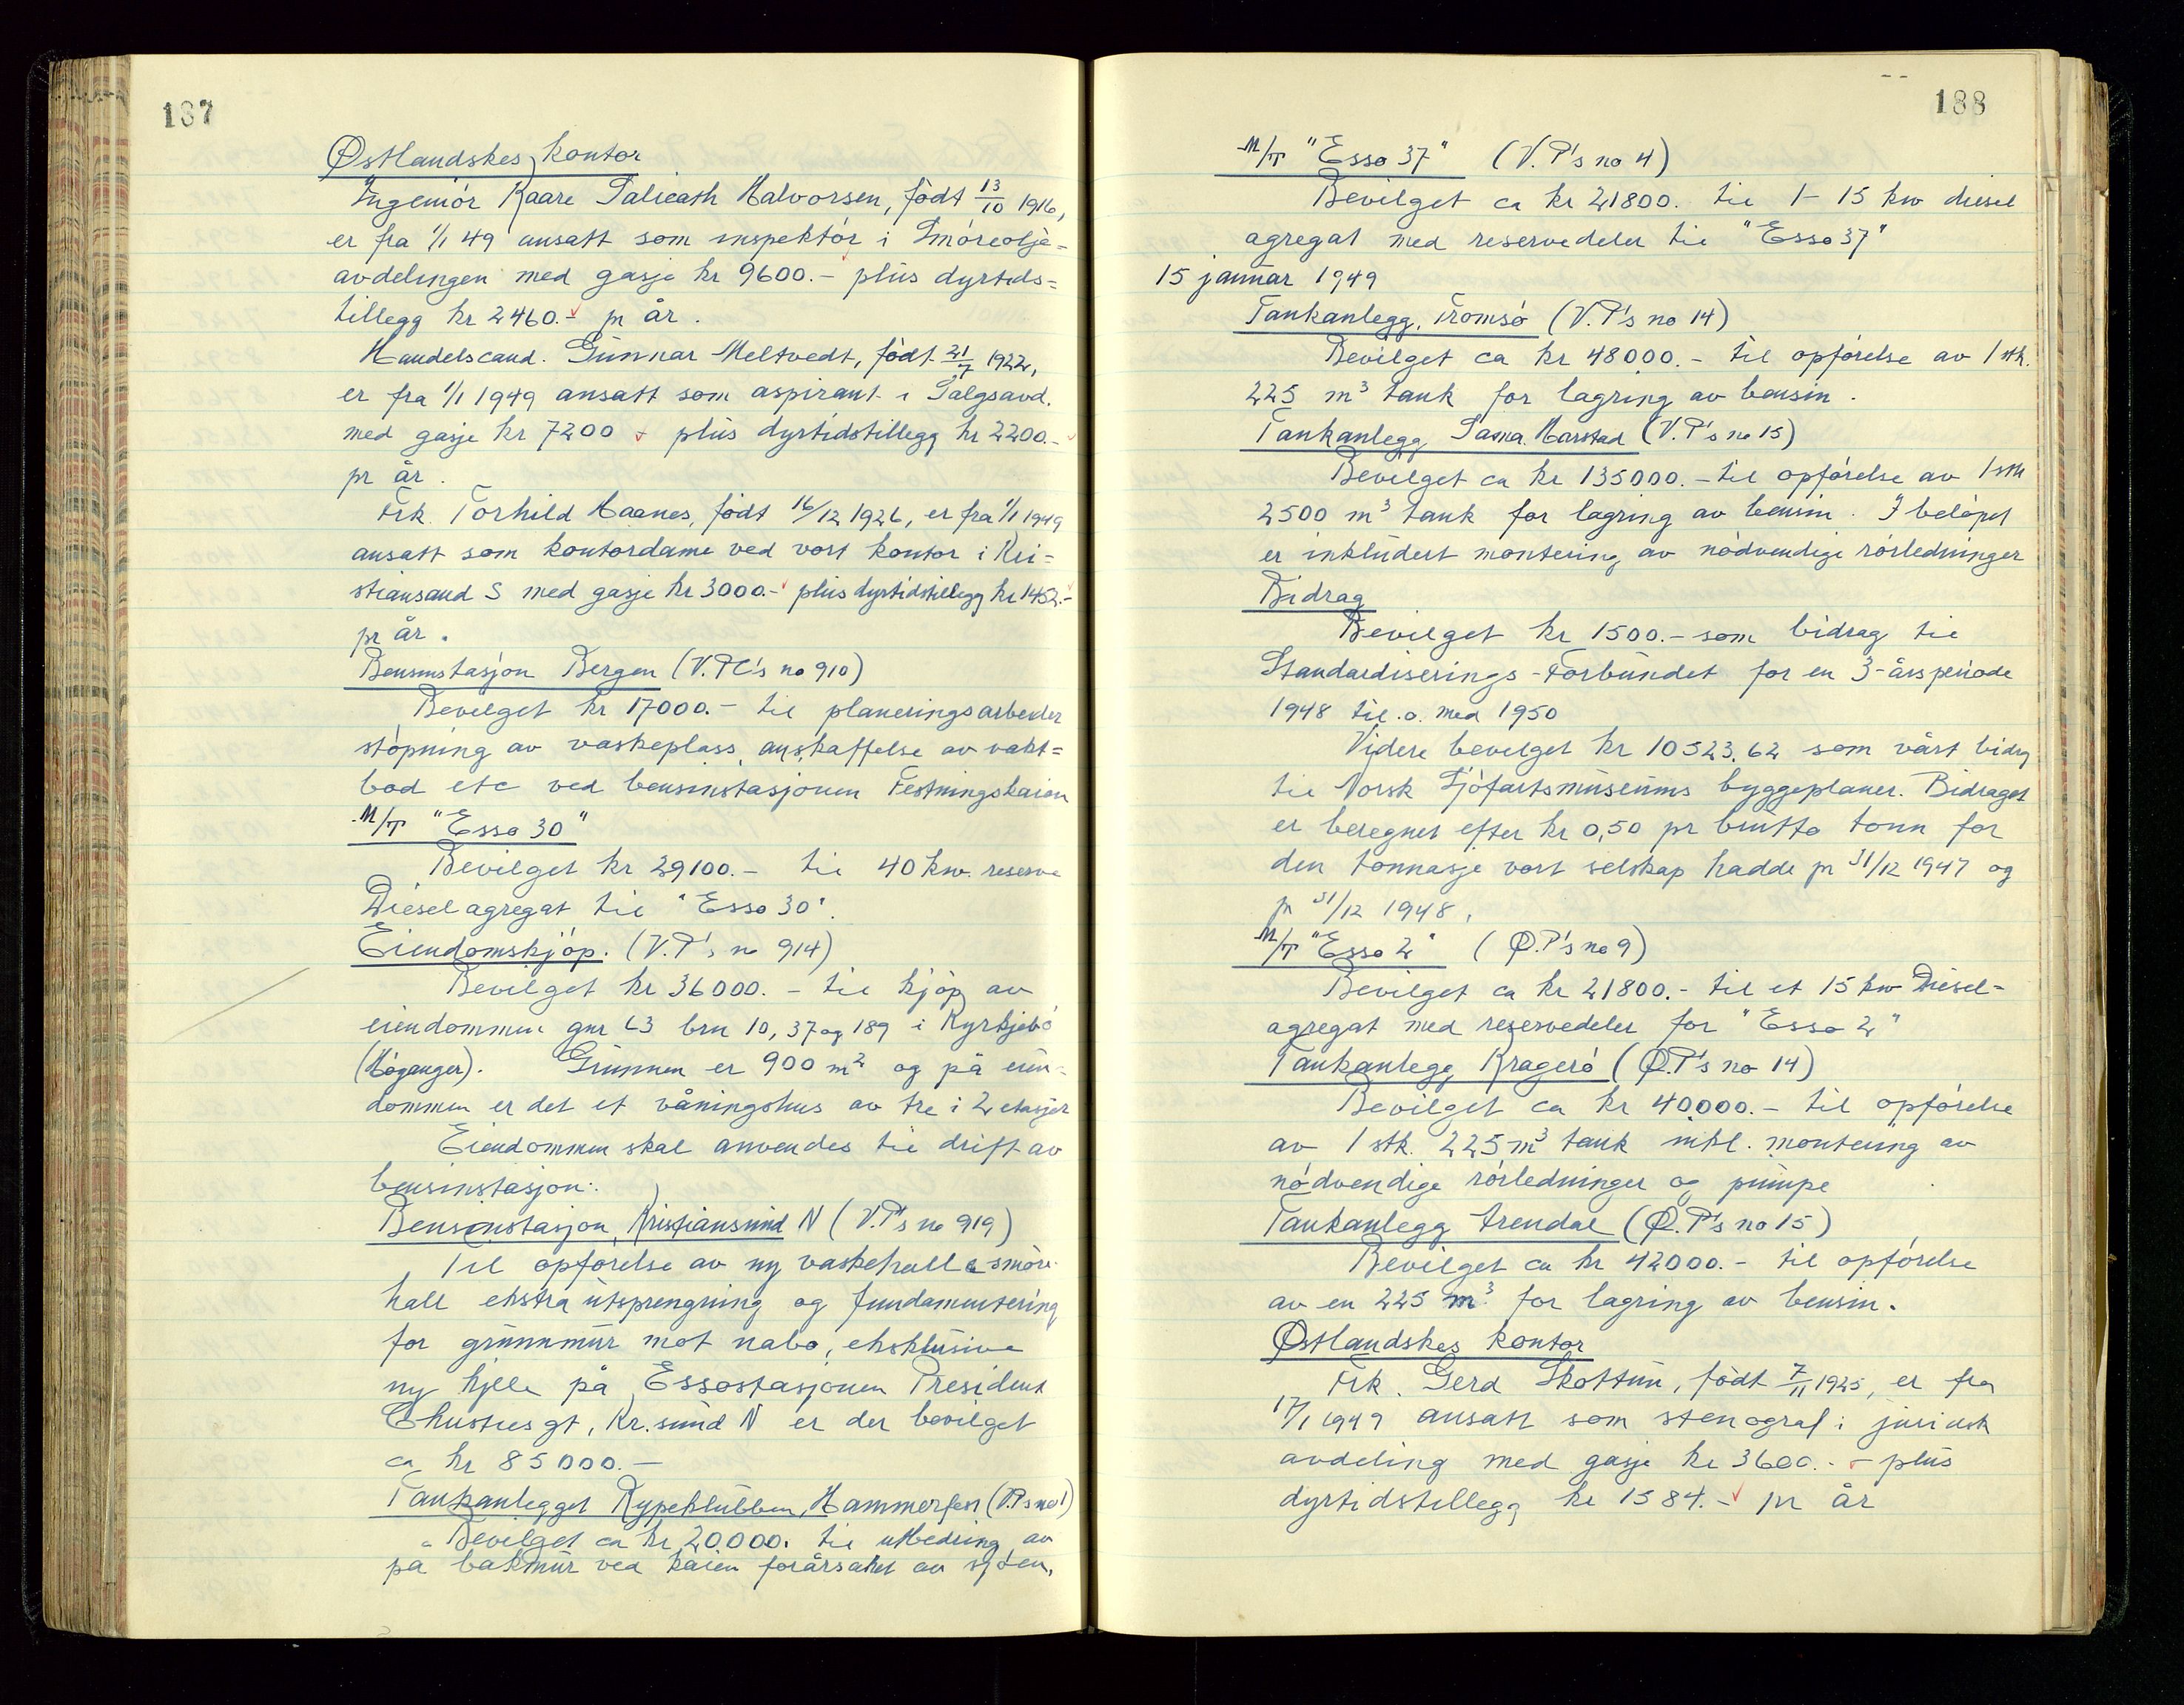 187
Østlandskes kontor
Ingeniør Kaare Salicath Halvorsen, født 13/10 1916,
er fra 1/1 49 ansatt som inspektør i Smøreolje=
avdelingen med gasje kr 9600.- plus dyrtids=
tillegg kr 2460.- pr år.
Handelscand. Gunnar Meltvedt, født 21/7 1922,
er fra 1/1 1949 ansatt som aspirant i Salgsavd.
med gasje kr 7200 - plus dyrtidstillegg kr 2200.-
pr år.
Frk. Torhild Haanes, født 16/12 1926, er fra 1/1 1949
ansatt som kontordame ved vort kontor i Kri=
stiansand S med gasje kr 3000.- plus dyrtidstillegg kr 1452.-
pr år.
Bensinstasjon Bergen (V.Pl's no 910)
Bevilget kr 17000.- til planeringsarbeider
støpning av vaskeplass, anskaffelse av vakt=
bod etc ved bensinstasjonen Festningskaien
M/T "Esso 30"
Bevilget kr 29100.- til 40 kw. reserve
Dieselagregat til "Esso 30".
Eiendomskjøp. (V.P's no 914)
Bevilget kr 36000.- til kjøp av
eiendommen gnr 63 brn 10, 37 og 189 i Kyrkjebø
(Høyanger). Grunnen er 900 m2 og på eien=
dommen er det et våningshus av tre i 2 etasjer
Eiendommen skal anvendes til drift av
bensinstasjon.
Bensinstasjon, Kristiansund N (V.P's no 919)
Til opførelse av ny vaskehall & smøre
hall ekstra utsprengning og fundamentering
for grunnmur mot nabo, eksklusive
ny kjelle på Essostasjonen President
Christies gt, Kr.sund N er der bevilget
ca kr 85000.-
Tankanlegget Rypeklubben, Hammerfest (V.P's no 1)
Bevilget ca kr 20000. til utbedring av
på bakmur ved kaien forårsaket av sjøen,
188
M/T "Esso 37" (V.P's no 4)
Bevilget ca kr 21800. til 1- 15 kw diesel
agregat med reservedeler til "Esso 37"
15 januar 1949
Tankanlegg, Tromsø (V.P's no 14)
Bevilget ca kr 48000.- til opførelse av 1 stk.
225 m3 tank for lagring av bensin.
Tankanlegg Sama Harstad (V.P's no 15)
Bevilget ca kr 135000.- til opførelse av 1 stk
2500 m3 tank for lagring av bensin. I beløpet
er inkludert montering av nødvendige rørledninger
Bidrag
Bevilget kr 1500.- som bidrag til
Standardiserings-Forbundet for en 3-årsperiode
1948 til.o. med 1950
Videre bevilget kr 10523.62 som vårt bidrag
til Norsk Sjøfartsmuseums byggeplaner. Bidraget
er beregnet efter kr 0,50 pr brutto tonn for
den tonnasje vort selskap hadde pr 31/12 1947 og
pr 31/12 1948.
M/T "Esso 2" (Ø.P's no 9)
Bevilget ca kr 21800.- til et 15 kw Diesel-
agregat med reservedeler for "Esso 2"
Tankanlegg Kragerø (Ø.P's no 14)
Bevilget ca kr 40000.- til opførelse
av 1 stk. 225 m3 tank inkl. montering av
nødvendige rørledninger og pumpe
Tankanlegg Arendal (Ø.P's no 15)
Bevilget ca kr 42000.- til opførelse
av en 225 m3 for lagring av bensin.
Østlandskes kontor
Frk. Gerd Skottun, født 7/11 1925, er fra
17/1 1949 ansatt som stenograf i juridisk
avdeling med gasje kr 3600.- plus
dyrtidstillegg kr 1584.- pr år